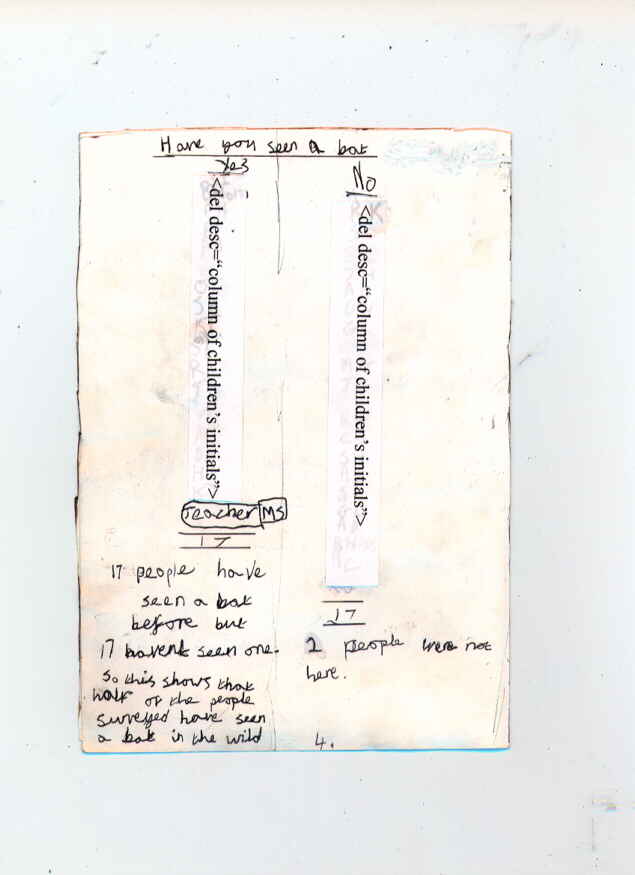 Have you seen a bat
Yes
<del desc="column of children's initials">
Teacher MS
17
17 people have
seen a bat
before but
17 havent seen one.
so this shows that
half of the people
surveyed have seen
a bat in the wild
No
<del desc="column of children's initials">
17
2 people were not
here.
4.